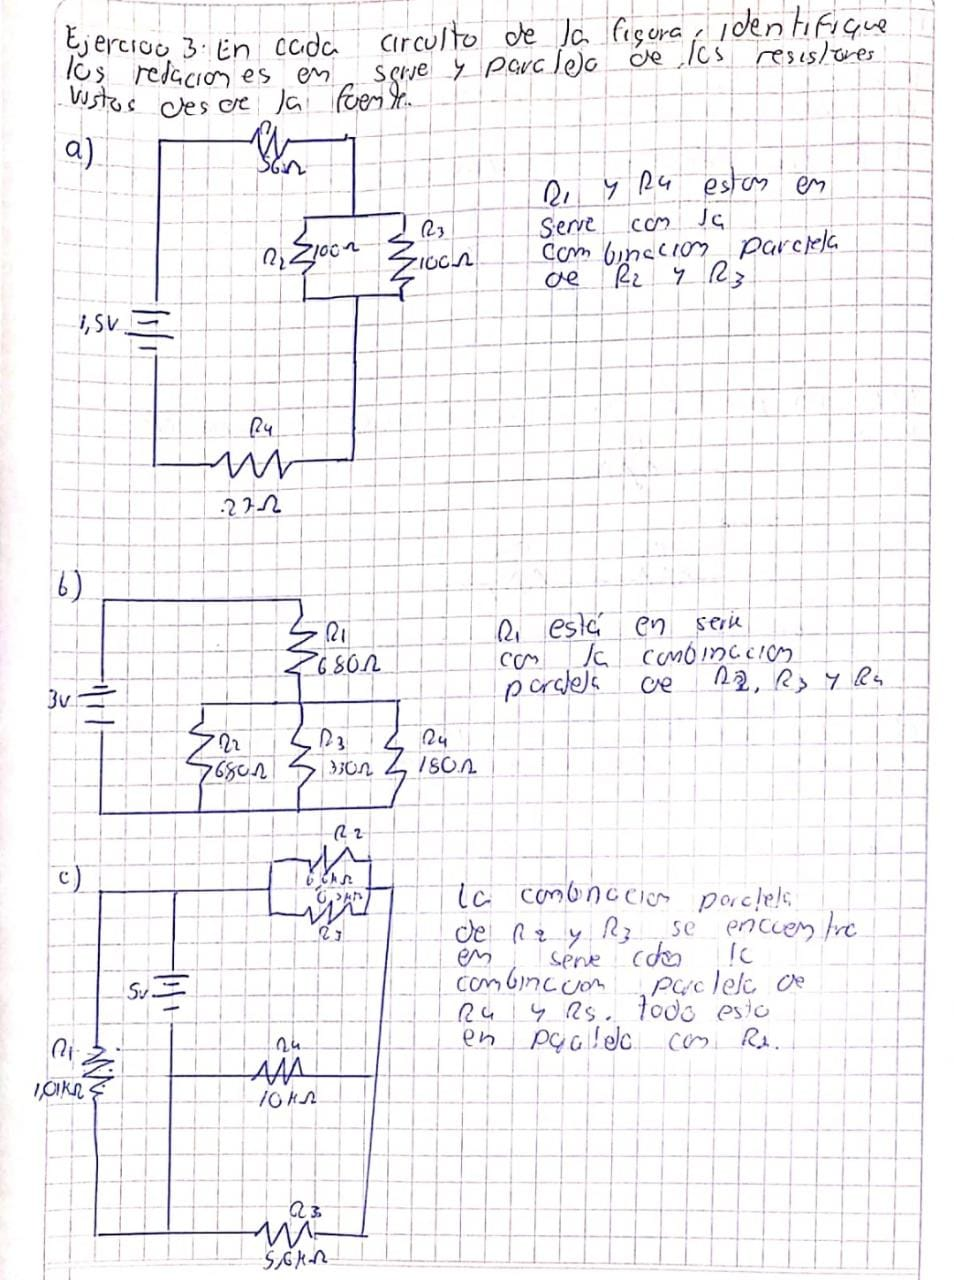 Ejercicio 3. En cada circuito de la figura, identifique
las relaciones en serie y paralelo de los resistores
vistos desde la fuente.
a)
56Ω
R2 100Ω
R3
100Ω
1,5V
R4
27Ω
R1 y R4 estan en
serie con la
combinacion paralela
de R2 y R3
b)
R1
680Ω
3V
R2
680Ω
R3
330Ω
R4
180Ω
R1 está en serie
con la combinacion
paralela de R2, R3 y R4
c)
R2
R3
5v
R1
1,01KΩ
R4
10KΩ
R3
5,6KΩ
la combinacion paralela
de R2 y R3 se encuentra
en serie con la
combinacion paralela de
R4 y R5. todo esto
en paralelo con R1.